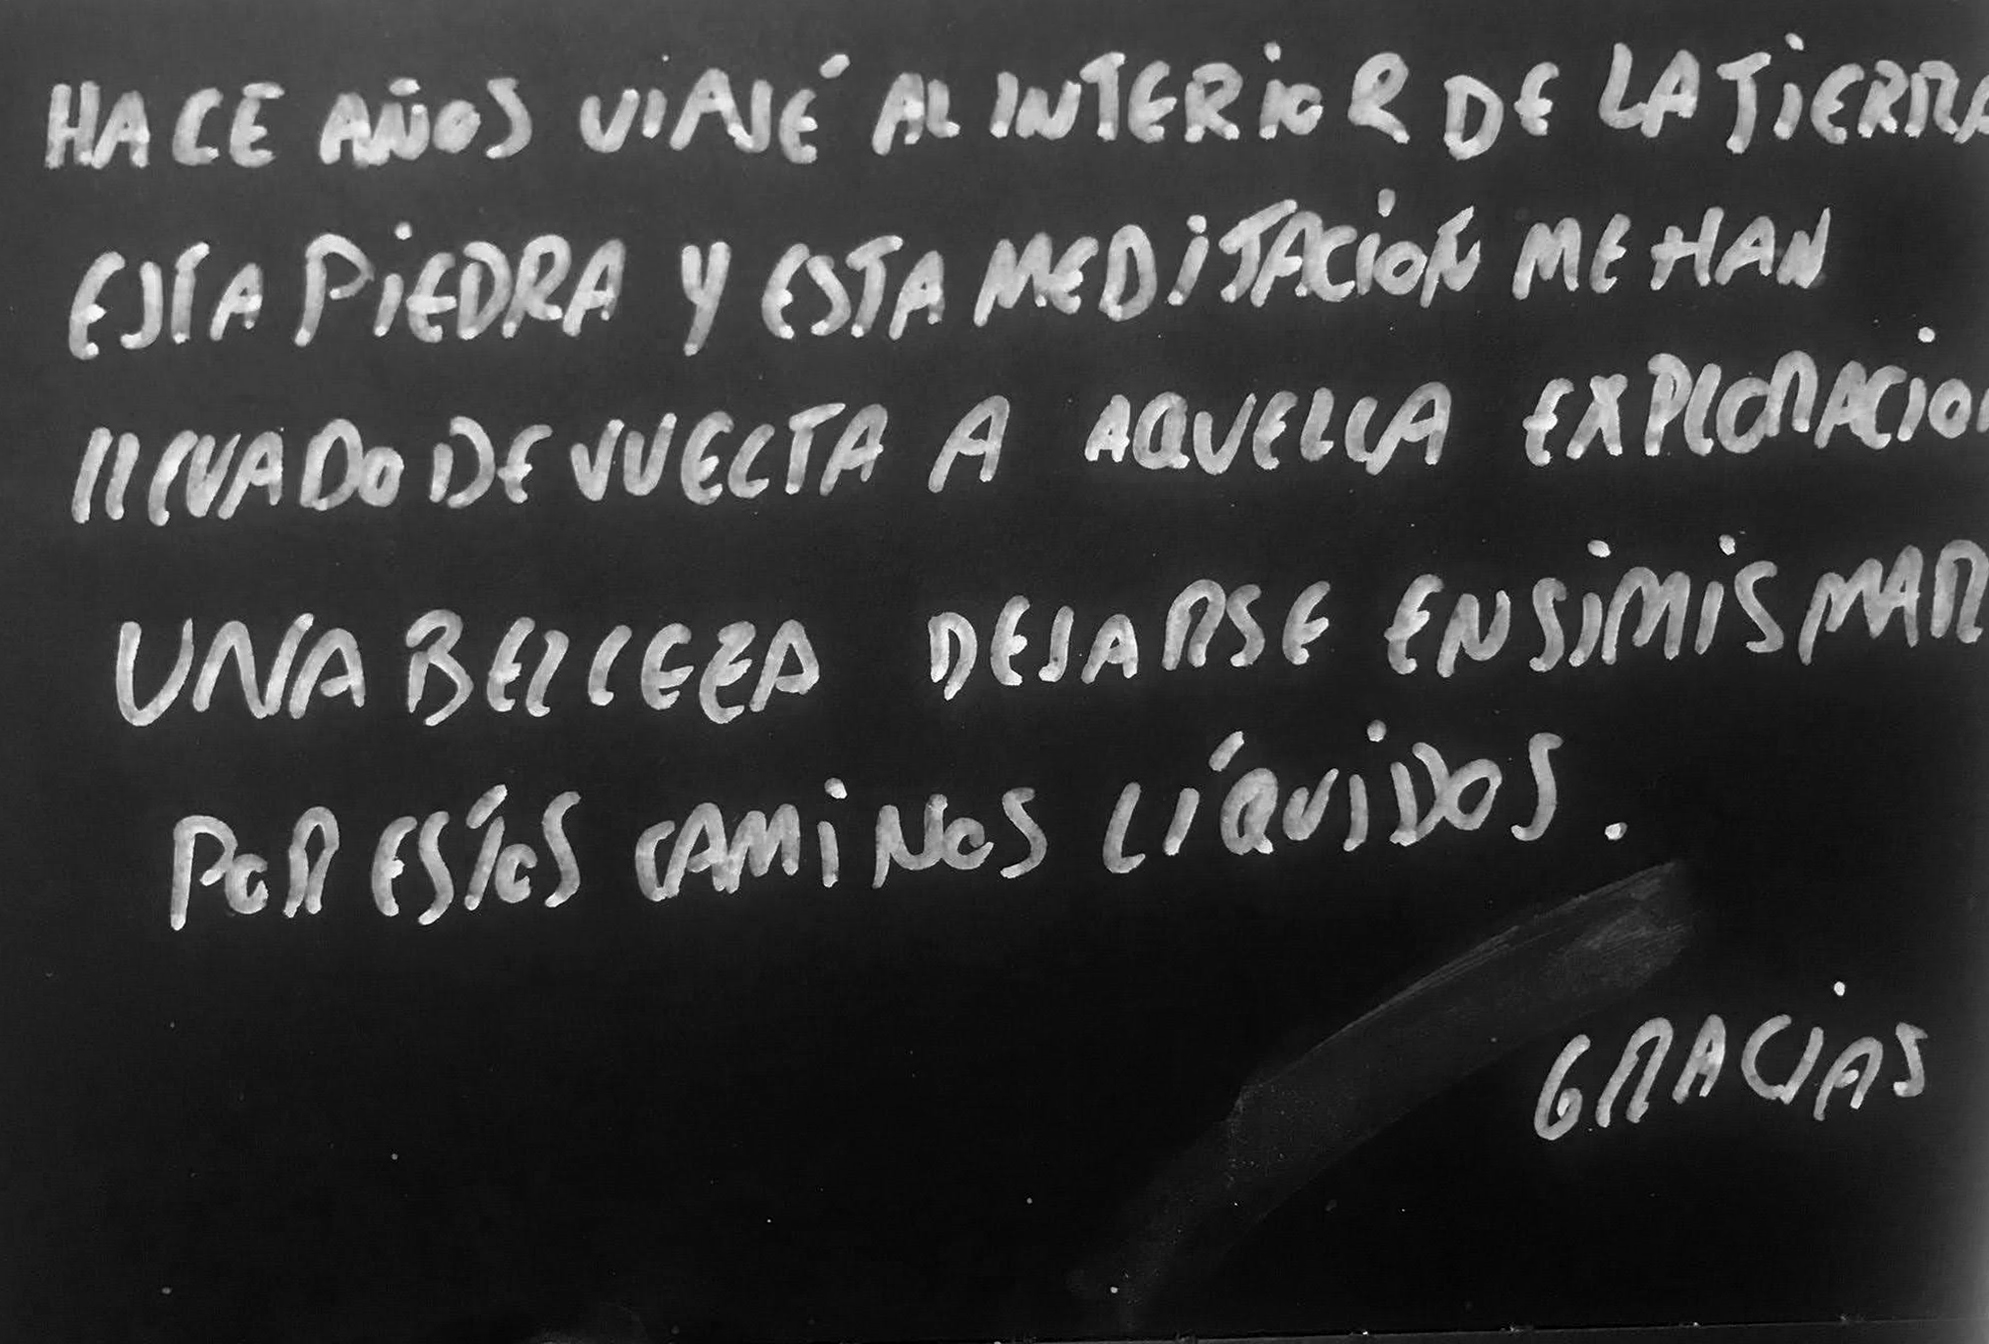 HACE AÑOS VIAJÉ AL INTERIOR DE LA TIERRA
ESTA PIEDRA Y ESTA MEDITACION ME HAN
LLEVADO DE VUELTA A AQUELLA EXPLORACION
UNA BELLEZA DEJARSE ENSIMISMAR
POR ESTOS CAMINOS LÍQUIDOS.
GRACIAS